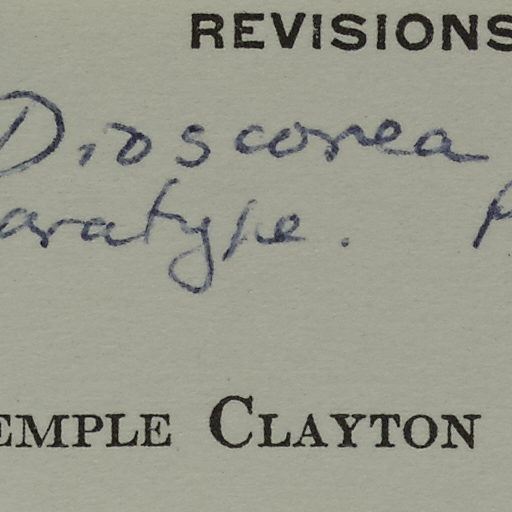 REVISIONS
Dioscorea
aratype.
EMPLE CLAYTON